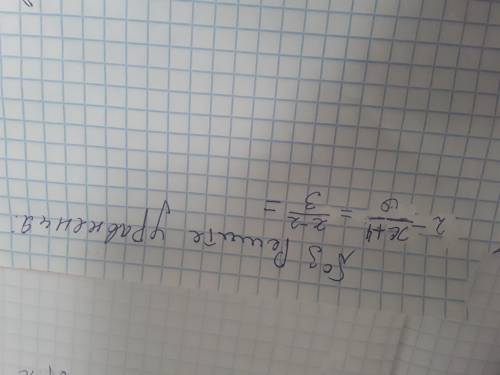 503 Решите уравнения:
2 - (x+4)/6 = (x-2)/3 =